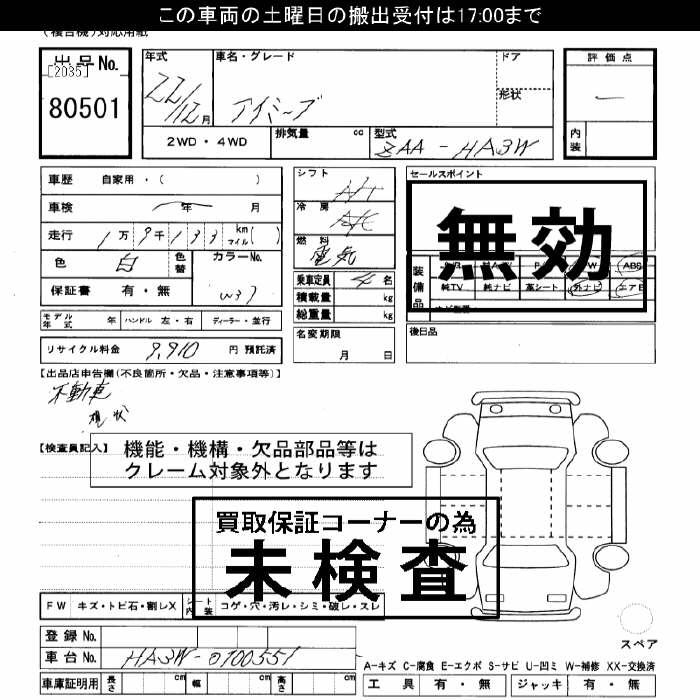 この車両の土曜日の搬出受付は17:00まで
(複合機)対応用紙
出品No.
[2035]
80501
年式
22/12月
車名・グレード
アイミーブ
ドア
形状
評価点
内装
2WD・4WD
排気量 cc
型式
ZAA - HA3W
車歴 自家用・( )
車検 年 月
走行 1万9千133 km マイル( )
色 白 色替 カラーNo. W37
保証書 有・無
モデル年式 年 ハンドル 左・右 ディーラー・並行
リサイクル料金 9,910 円 預託済
シフト A/T
冷房 A/C
燃料 電気
乗車定員 4 名
積載量 kg
総重量 kg
名変期限
月 日
セールスポイント
無効
装備品
ABS
純TV 純ナビ 革シート 外ナビ エアB
後日品
【出品店申告欄(不良箇所・欠品・注意事項等)】
不動車
現状
【検査員記入】
機能・機構・欠品部品等は
クレーム対象外となります
買取保証コーナーの為
未検査
FW キズ・トビ石・割レX シート内装 コゲ・穴・汚レ・シミ・破レ・スレ
登録No.
車台No. HA3W-0100551
車庫証明用 長さ cm 幅 cm 高さ cm
スペア
A-キズ C-腐食 E-エクボ S-サビ U-凹ミ W-補修 XX-交換済
工具 有・無 ジャッキ 有・無